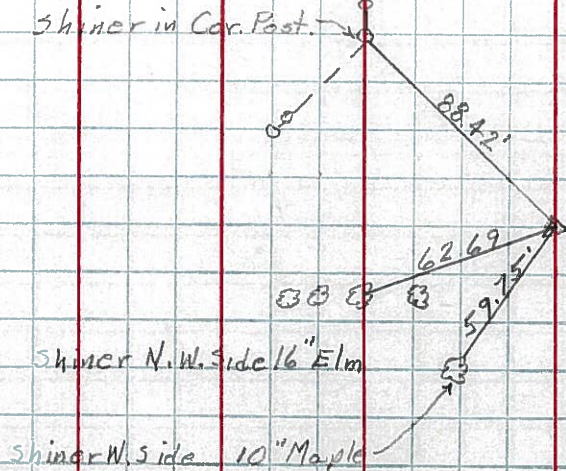 Shiner in Cor. Post.
88.42'
62.69
59.75'
Shiner N.W. Side 16" Elm
Shiner W. Side 10" Maple